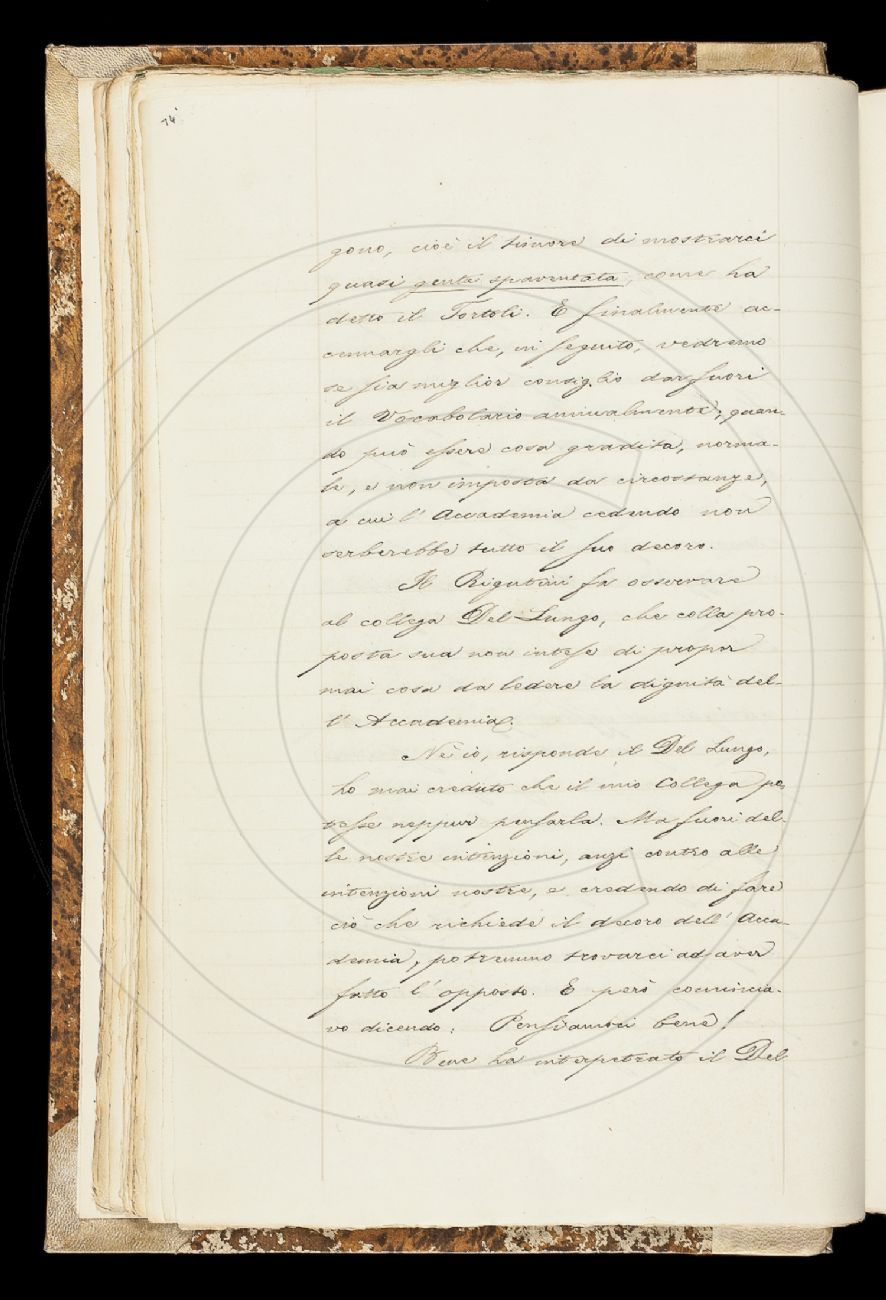 74
gono, cioè il timore di mostrarci
quasi gente spaventata, come ha
detto il Tortoli. E finalmente ac-
cennargli che, in seguito, vedremo
se sia miglior consiglio dar fuori
il Vocabolario annualmente; quan-
do può essere cosa gradita, norma-
le, e non imposta da circostanze,
a cui l'Accademia cedendo non
serberebbe tutto il suo decoro.
Il Rigutini fa osservare
al collega Del Lungo, che colla pro-
posta sua non intese di propor
mai cosa da ledere la dignità del-
l'Accademia.
Nè io, risponde il Del Lungo,
ho mai creduto che il mio Collega po-
tesse neppur pensarla. Ma fuori del-
le nostre intenzioni, anzi contro alle
intenzioni nostre, e credendo di fare
ciò che richiede il decoro dell'Acca-
demia, potremmo trovarci ad aver
fatto l'opposto. E però comincia-
vo dicendo: Pensiamoci bene!
Bene ha interpetrato il Del